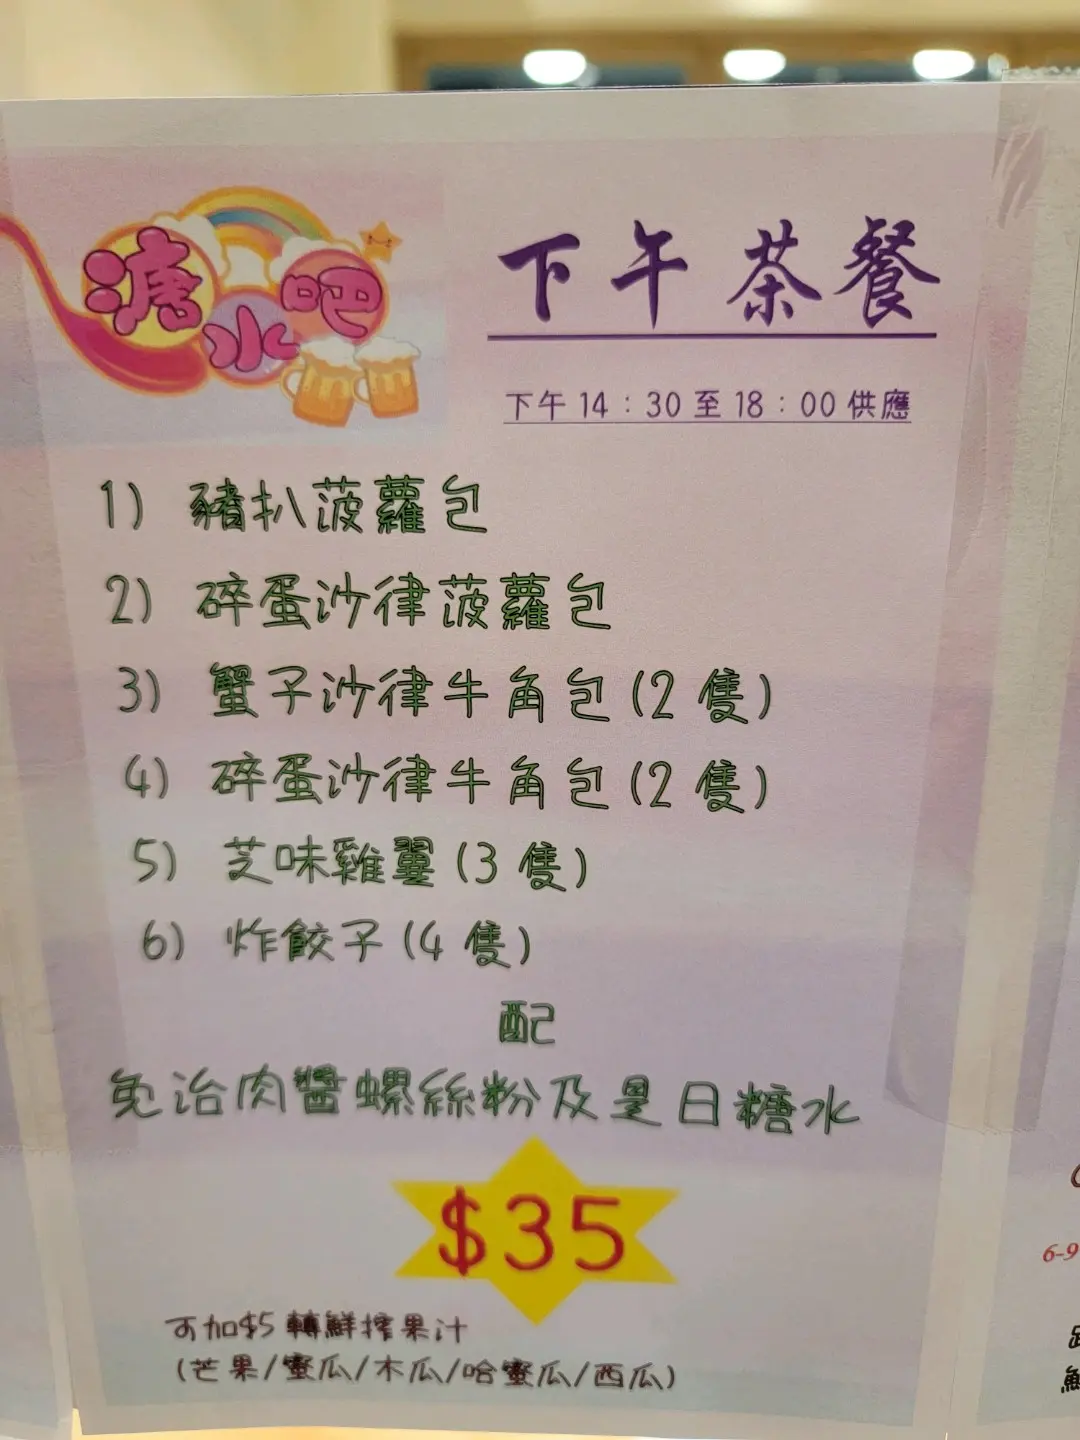 溏水吧
下午茶餐
下午 14：30 至 18：00 供應
1) 豬扒菠蘿包
2) 碎蛋沙律菠蘿包
3) 蟹子沙律牛角包(2 隻)
4) 碎蛋沙律牛角包(2 隻)
5) 芝味雞翼(3 隻)
6) 炸餃子(4 隻)
配
免治肉醬螺絲粉及是日糖水
$35
可加$5 轉鮮搾果汁
(芒果/蜜瓜/木瓜/哈蜜瓜/西瓜)
6-9